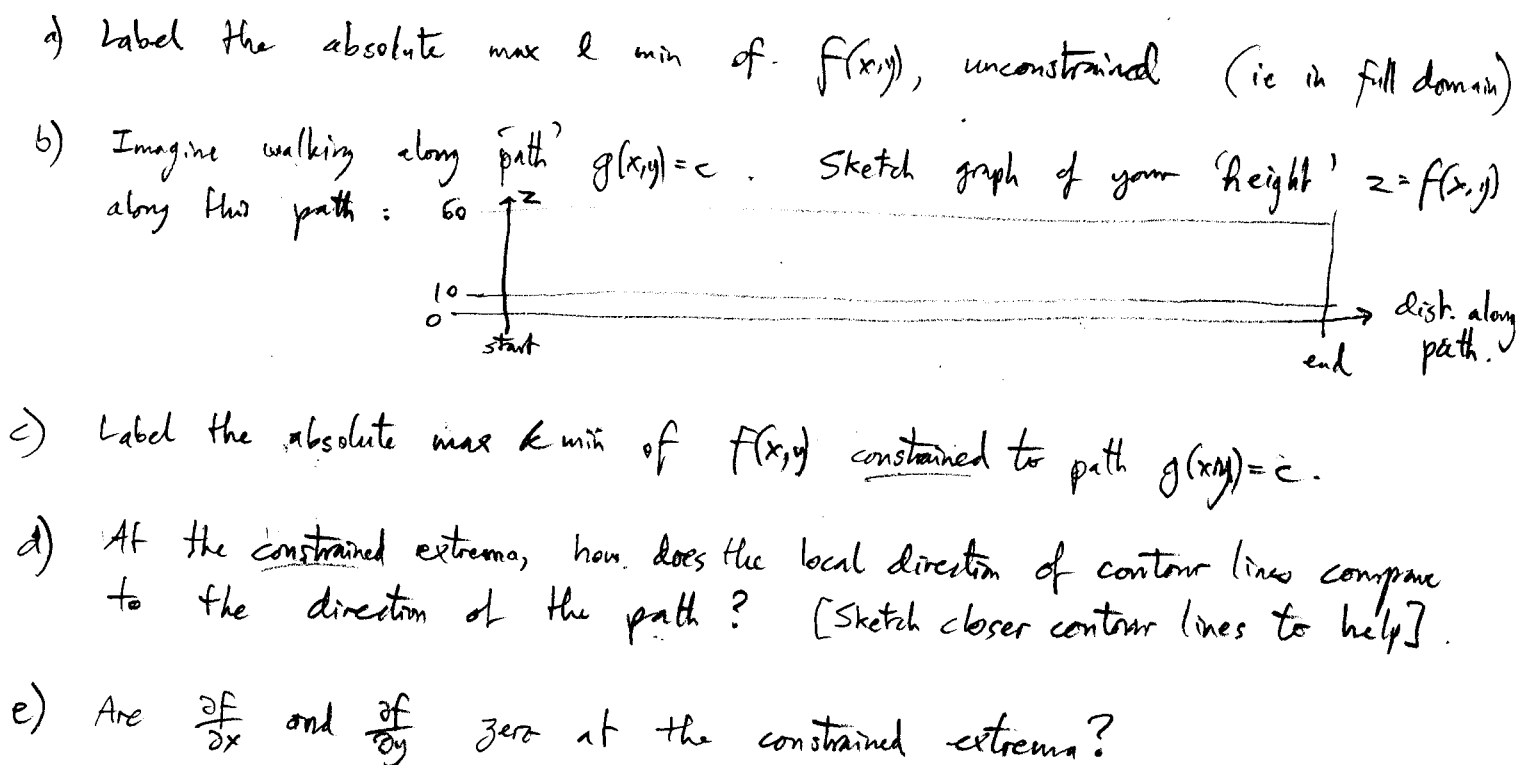 a) Label the absolute max & min of f(x,y), unconstrained (ie in full domain)
b) Imagine walking along 'path' g(x,y)=c. Sketch graph of your 'height' z=f(x,y)
along this path:
60
z
10
0
start
end
dist. along
path.
c) Label the absolute max & min of f(x,y) constrained to path g(x,y)=c.
d) At the constrained extrema, how does the local direction of contour lines compare
to the direction of the path? [Sketch closer contour lines to help].
e) Are ∂f/∂x and ∂f/∂y zero at the constrained extrema?